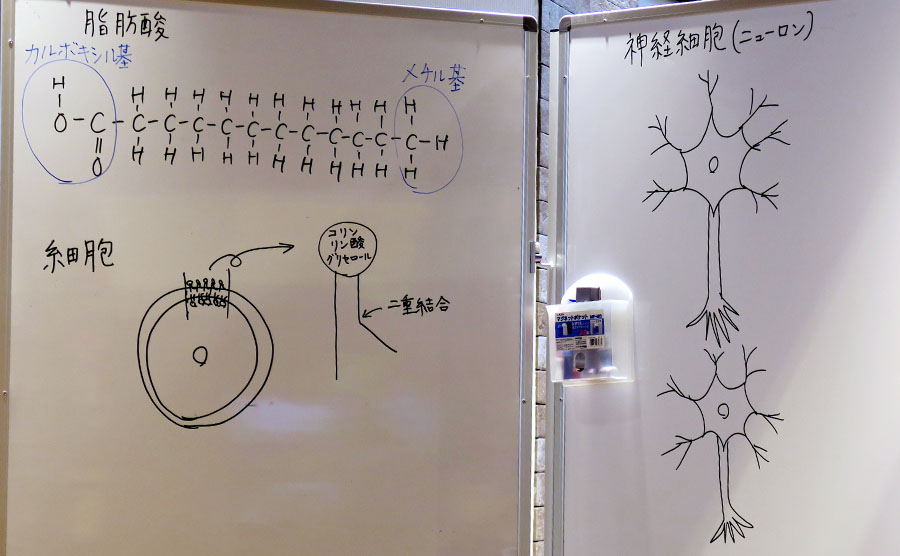 脂肪酸
カルボキシル基
メチル基
H H H H H H H H H H H H
O-C-C-C-C-C-C-C-C-C-C-C-C-H
O H H H H H H H H H H H
細胞
コリン
リン酸
グリセロール
二重結合
神経細胞(ニューロン)
マグネットポケット